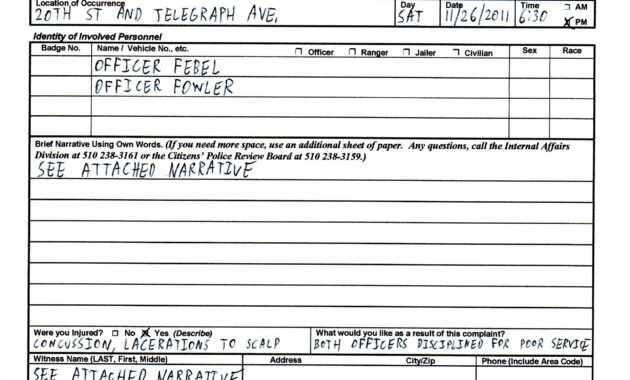 Location of Occurrence Day Date Time AM
20TH ST AND TELEGRAPH AVE, SAT 11/26/2011 6:30 PM
Identity of Involved Personnel
Badge No. Name / Vehicle No., etc. Officer Ranger Jailer Civilian Sex Race
OFFICER FEBEL
OFFICER FOWLER
Brief Narrative Using Own Words. (If you need more space, use an additional sheet of paper. Any questions, call the Internal Affairs
Division at 510 238-3161 or the Citizens' Police Review Board at 510 238-3159.)
SEE ATTACHED NARRATIVE
Were you Injured? No Yes (Describe) What would you like as a result of this complaint?
CONCUSSION, LACERATIONS TO SCALP BOTH OFFICERS DISCIPLINED FOR POOR SERVICE
Witness Name (LAST, First, Middle) Address City/Zip Phone (Include Area Code)
SEE ATTACHED NARRATIVE